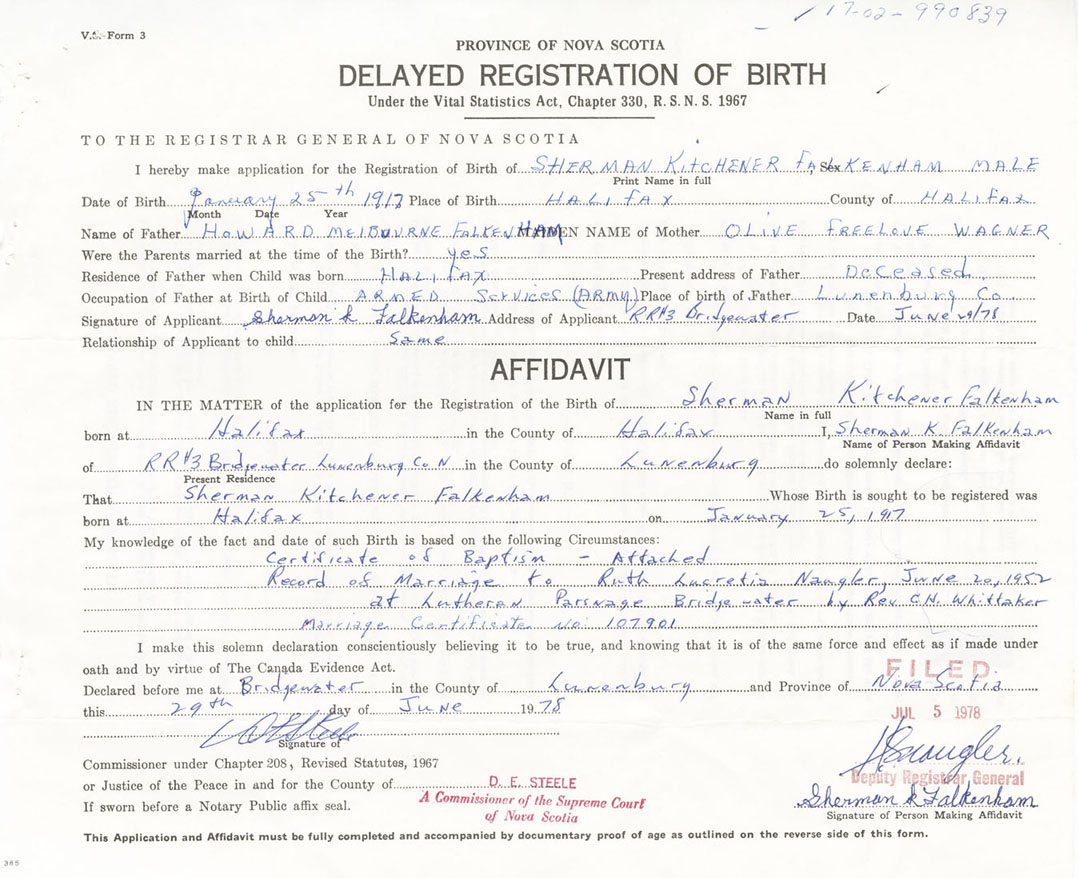 17-02-990839
V.S. Form 3
PROVINCE OF NOVA SCOTIA
DELAYED REGISTRATION OF BIRTH
Under the Vital Statistics Act, Chapter 330, R. S. N. S. 1967
TO THE REGISTRAR GENERAL OF NOVA SCOTIA
I hereby make application for the Registration of Birth of SHERMAN KITCHENER FALKENHAM Sex MALE
Print Name in full
Date of Birth January 25th 1917 Place of Birth HALIFAX County of HALIFAX
Month Date Year
Name of Father HOWARD MELBOURNE FALKENHAM MAIDEN NAME of Mother OLIVE FREELOVE WAGNER
Were the Parents married at the time of the Birth? yes
Residence of Father when Child was born HALIFAX Present address of Father Deceased
Occupation of Father at Birth of Child ARMED Services (ARMY) Place of birth of Father Lunenburg Co
Signature of Applicant Sherman K Falkenham Address of Applicant RR#3 Bridgewater Date June 29/78
Relationship of Applicant to child Same
AFFIDAVIT
IN THE MATTER of the application for the Registration of the Birth of Sherman Kitchener Falkenham
Name in full
born at Halifax in the County of Halifax I, Sherman K. Falkenham
Name of Person Making Affidavit
of RR#3 Bridgewater Lunenburg Co N in the County of Lunenburg do solemnly declare:
Present Residence
That Sherman Kitchener Falkenham Whose Birth is sought to be registered was
born at Halifax on January 25, 1917
My knowledge of the fact and date of such Birth is based on the following Circumstances:
Certificate of Baptism - Attached
Record of Marriage to Ruth Lucretia Naugler, June 20, 1952
at Lutheran Parsnage Bridgewater by Rev C.N. Whittaker
Marriage Certificate No: 107901
I make this solemn declaration conscientiously believing it to be true, and knowing that it is of the same force and effect as if made under
oath and by virtue of The Canada Evidence Act.
FILED
Declared before me at Bridgewater in the County of Lunenburg and Province of Nova Scotia
this 29th day of June 1978
JUL 5 1978
Signature of
Commissioner under Chapter 208, Revised Statutes, 1967
Deputy Registrar General
or Justice of the Peace in and for the County of D. E. STEELE
Sherman K Falkenham
If sworn before a Notary Public affix seal. A Commissioner of the Supreme Court
of Nova Scotia
Signature of Person Making Affidavit
This Application and Affidavit must be fully completed and accompanied by documentary proof of age as outlined on the reverse side of this form.
385